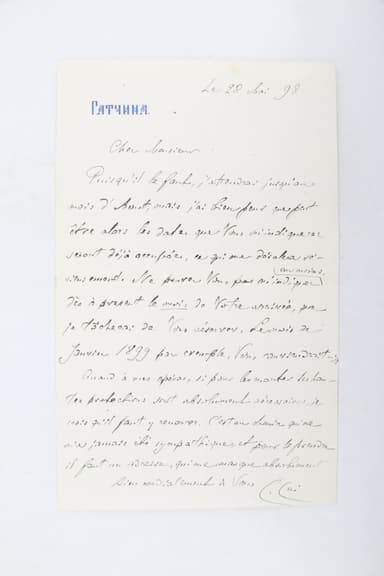 Le 28 Mai 98
Гатчина
Cher Monsieur
Puisqu'il le faut, j'attendrai jusqu'au
mois d'Aout, mais j'ai bien peur que peut
être alors les dates que Vous m'indiquerez
seront déjà occupées, ce qui me désolera sé-
rieusement. Ne pouvez Vous pas m'indiquer
au moins
dès à présent le mois de Votre arrivée, que
je tâcherai de Vous réserver. Le mois de
Janvier 1899 par exemple, Vous conviendrait-il
Quand à mes opéras, si pour les monter de hau-
tes protections sont absolument nécessaires, je
crois qu'il faut y renoncer. C'est un chemin qui ne
m'a jamais été sympathique, et pour le prendre
il faut une adresse, qui me manque absolument
Bien cordialement à Vous
C. Cui